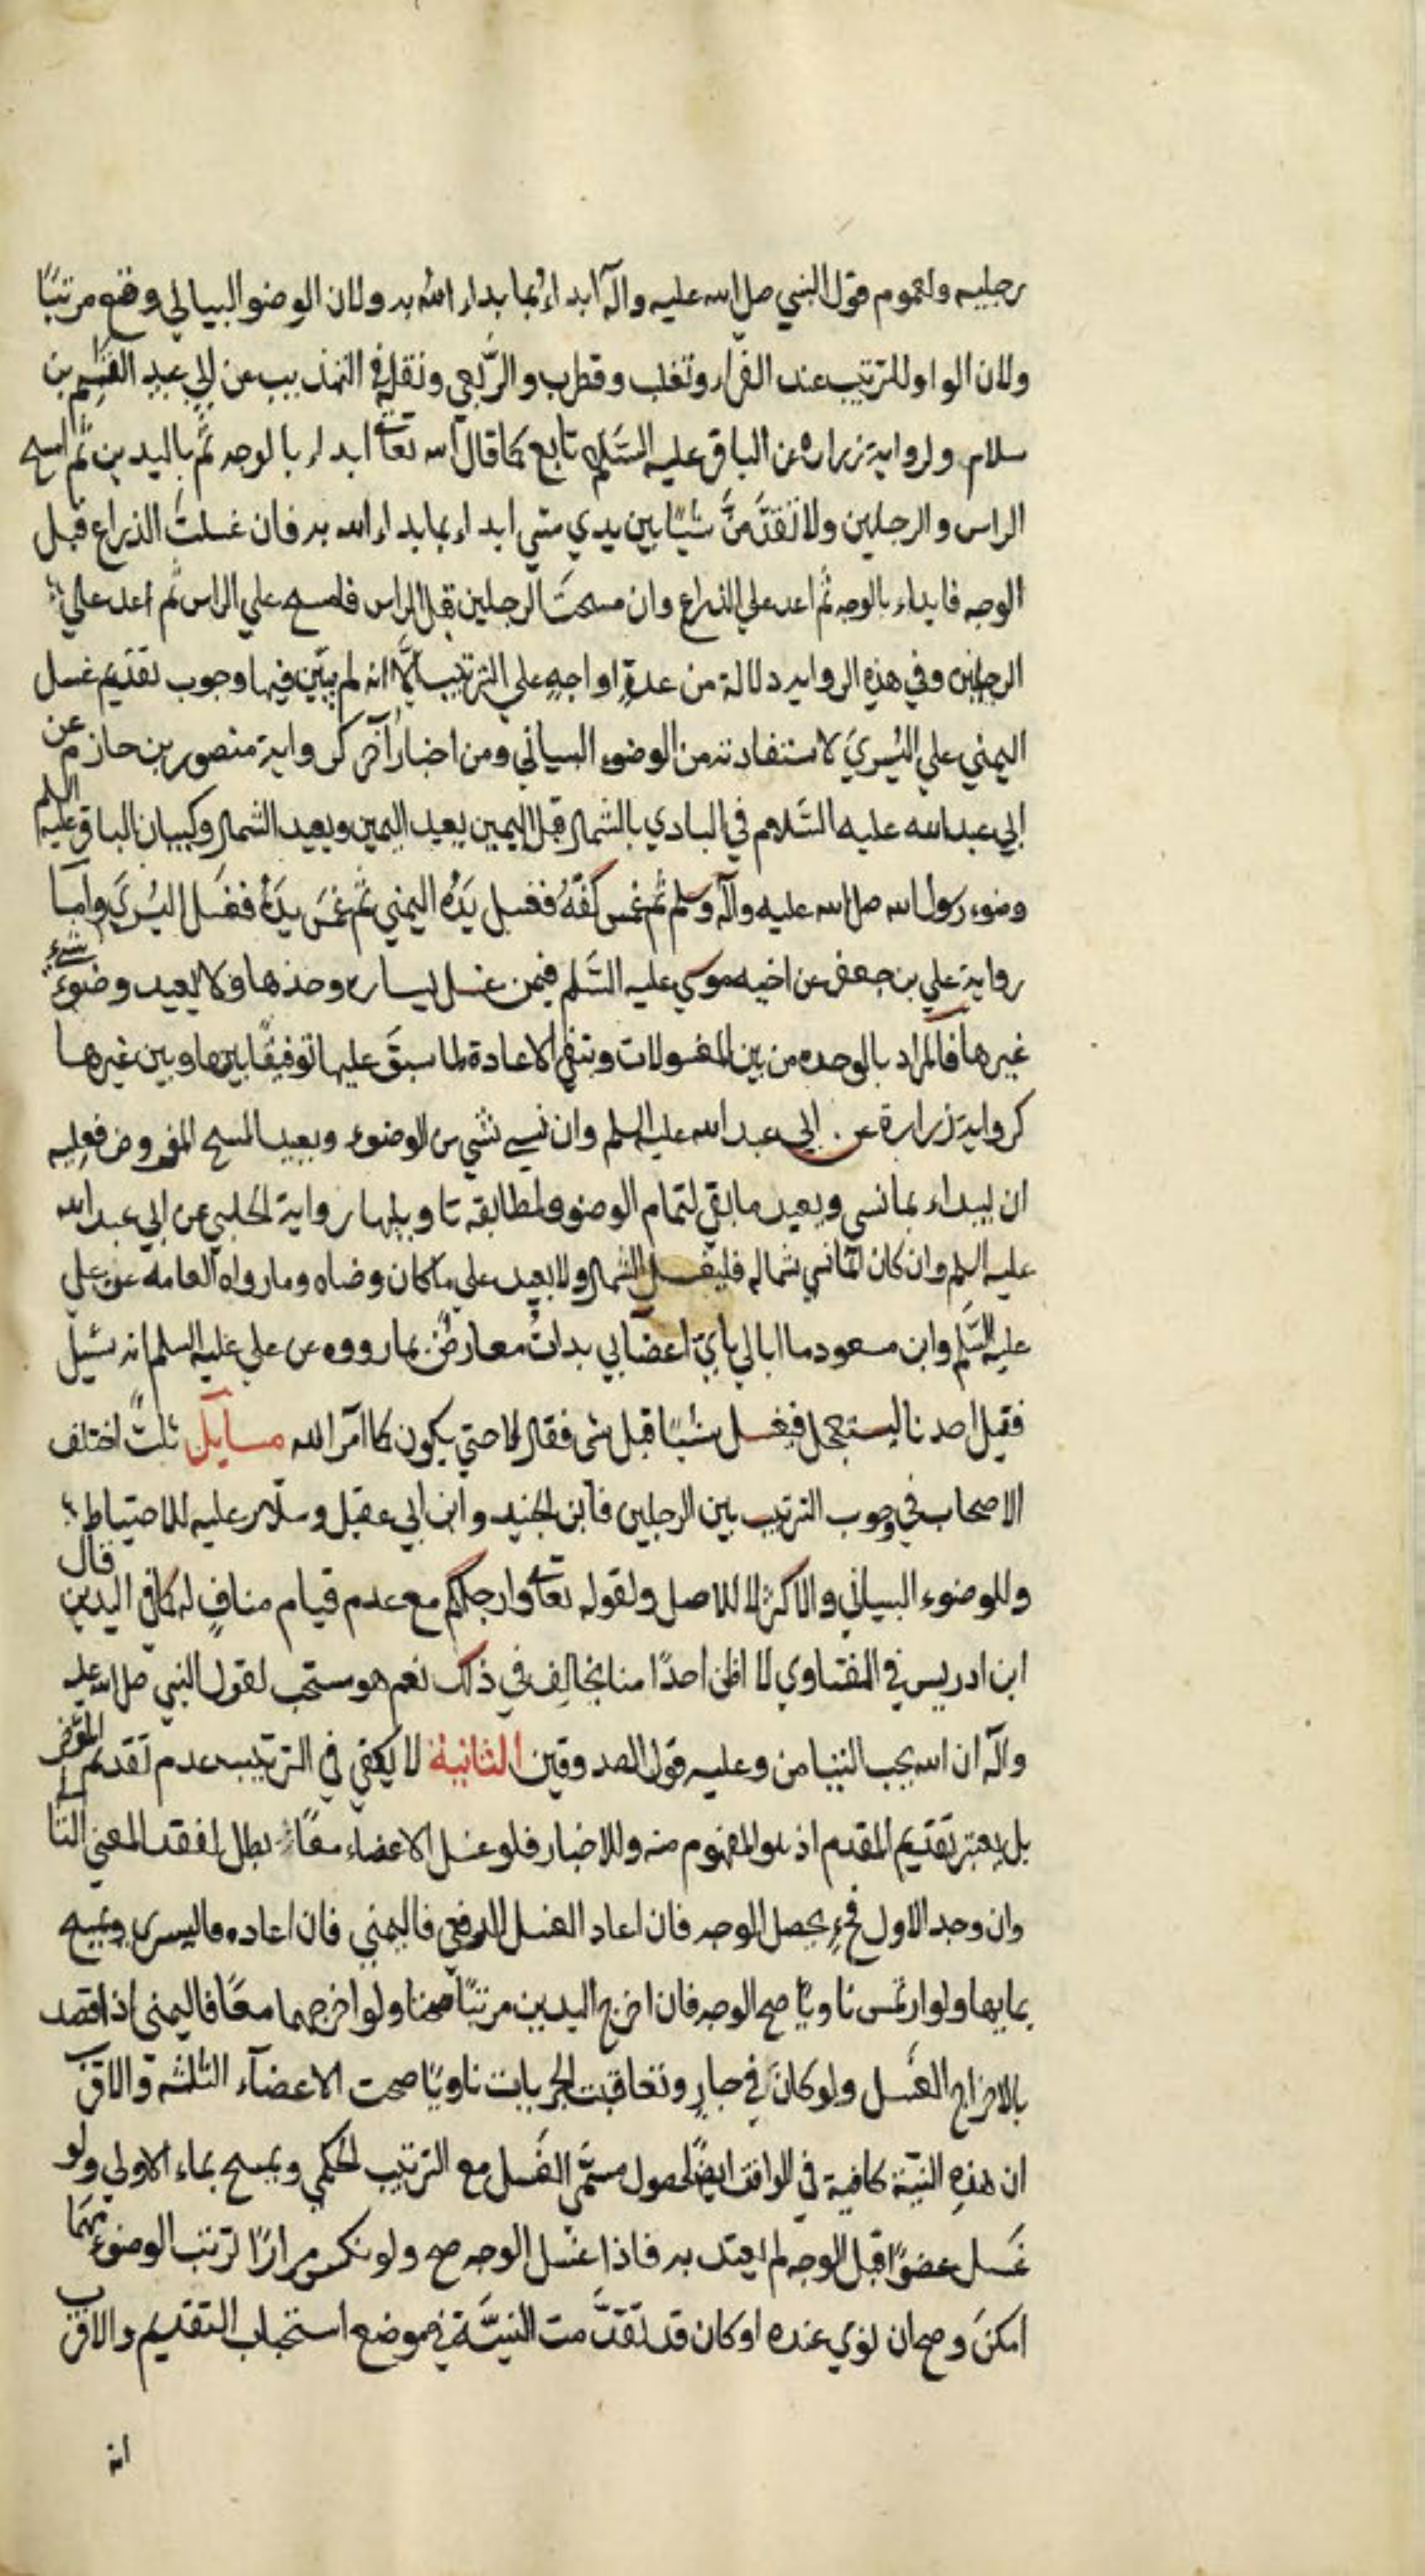 رجليه ولعموم قول النبي صلي الله عليه واله ابداء بما بداء الله به ولان الوضو البياني وقع مرتبًا
ولان الواو للترتيب عند الفراء وثعلب وقطرب والربعي ونقله في التهذيب عن ابي عبيد القسم بن
سلام ولرواية زراره عن الباقر عليه السّلم تابع كما قال الله تعالى ابداء بالوجه ثم باليدين ثم امسح
الراس والرجلين ولا تقدّمنّ شيئًا بين يدي شئ ابداء بما بداء الله به فان غسلت الذراع قبل
الوجه فابداء بالوجه ثم اعد علي الذراع وان مسحت الرجلين قبل الراس فامسح علي الراس ثم اعد علي
الرجلين وفي هذه الروايه دلالة من عدة اوجه علي الترتيب الّا انه لم يبيّن فيها وجوب تقديم غسل
اليمني علي اليُسريَ لاستفادته من الوضوء البياني ومن اخبار اُخر كرواية منصور بن حازم عن
ابي عبد الله عليه السّلام في البادي بالشمال قبل اليمين يعيد اليمين ويعيد الشمال وكبيان الباقر عليه السلم
وضوء رسول الله صلي الله عليه وآله وسلم ثم غمس كفّه فغسل يَدَه اليمني ثم غمَسَ يدَهُ فغسَل اليُسريَ وامّا
رواية علي بن جعفر عن اخيه موسي عليه السّلم فيمن غسل يساره وحدها ولا يعيد وضوء شيء
غيرها فالمراد بالوحده من بين المغسولات وبنفي الاعادة لما سبقَ عليها توفيقًا بينها وبين غيرها
كرواية زرارة عن ابي عبد الله عليه السلم وان نسي شئ من الوضوء ويعيد المسح المفروض فعليه
ان يبداء بما نسي ويعيد ما بقي لتمام الوضو ولمطابقه تاويلها رواية الحلبي عن ابي عبد الله
عليه السلم وان كان انما نسي شماله فليغسل الشمال ولا يعيد علي ما كان وضاه وما رواه العامه عن علي
عليه السّلم وابن مسعود ما ابالي باي اعضايي بدات معارض بما رووه عن علي عليه السلم انه سئيل
فقيل احدنا ليستعجل فيغسل شيئًا قبل شئ فقال لا حتي يكون كما امر الله مسآيل ثلث اختلف
الاصحاب في وجوب الترتيب بين الرجلين فابن الجنيد وابن ابي عقيل وسلار عليه للاحتياط
وللوضوء البياني والاكثر لا للاصل ولقوله تعالى وارجلكم مع عدم قيام مناف له كما في اليدين قال
ابن ادريس في الفتاوي لا اظن احدًا منا يخالف في ذلك نعم هو مستحب لقول النبي صلي الله عليه
وآله ان الله يحب التيامن وعليه قول الصدوقين الثانية لا يكفي في الترتيب عدم تقديم المؤخر
بل يعتبر تقديم المقدم اذ هو المفهوم منه وللاخبار فلو غسل الاعضاء معًا بطل لفقد المعني الثا
وان وجد الاول فحٍ يحصل الوجه فان اعاد الغسل فاليمني فان اعاده فاليسري ويمسح
بمايها ولو ارتمس ناويًا صح الوجه فان اخرج اليدين مرتبًا صحتا ولو اخرجهما معًا فاليمني اذا قصد
بالاخراج الغسل ولو كان في جارٍ وتعاقبت الجريات ناويًا صحت الاعضآء الثلثة والاقرب
ان هذه النيّة كافية في الواقف ايضًا لحصول مسمّي الغَسل مع الترتيب الحكمي ويمسح بماء الاولي ولو
غَسل عضوًا قبل الوجه لم يعتد به فاذا غسل الوجه صح ولو نكس مرارًا ترتب الوضوء مهما
امكن وصح ان نوي عنده او كان قد تقدّمت النيّة في موضع استحباب التقديم والاقرب
انه